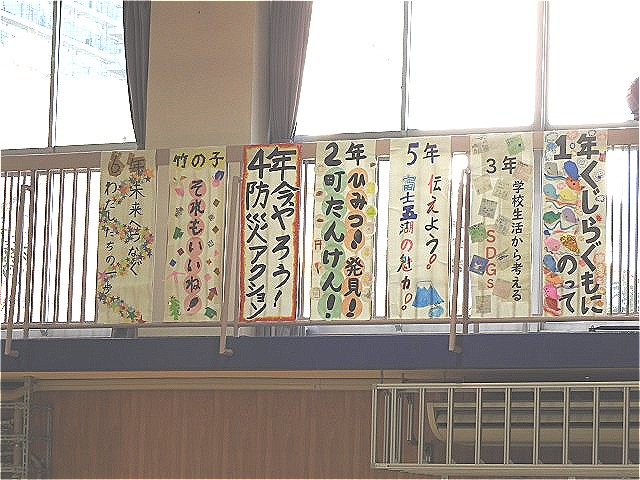 1年
くじらぐもに
のって
3年
学校生活から考える
SDGs
5年
伝えよう!
富士五湖の魅力!
2年
ひみつ!発見!
町たんけん!
4年
今やろう!
防災アクション
竹の子
それもいいね!
6年
未来へつなぐ
わたしたちの一歩